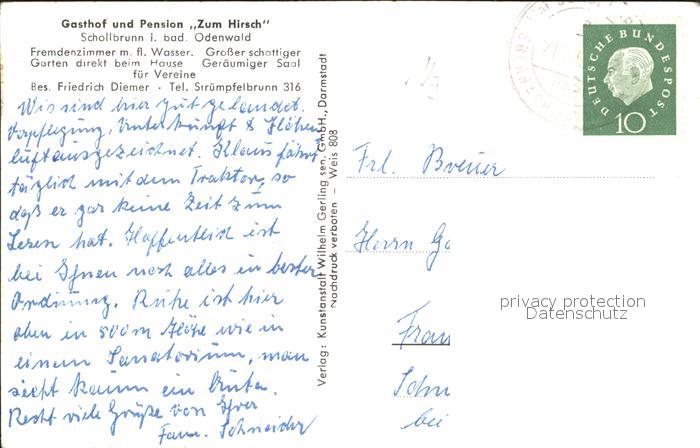 Gasthof und Pension „Zum Hirsch"
Schollbrunn i. bad. Odenwald
Fremdenzimmer m. fl. Wasser. Großer schattiger
Garten direkt beim Hause Geräumiger Saal
für Vereine
Bes. Friedrich Diemer · Tel. Strümpfelbrunn 316
Wir sind hier gut gelandet.
Verpflegung, Unterkunft & Höhen
luft ausgezeichnet. Klaus fährt
täglich mit dem Traktor, so
daß er gar keine Zeit zum
Lesen hat. Hoffentlich ist
bei Ihnen noch alles in bester
Ordnung. Ruhe ist hier
oben in 500m Höhe wie in
einem Sanatorium, man
sieht kaum ein
Recht viele Grüße von Ihrer
Fam. Schneider
Verlag: Kunstanstalt Wilhelm Gerling sen. GmbH., Darmstadt
Nachdruck verboten – Weis 808
DEUTSCHE BUNDESPOST
10
Frl. Breuer
Herrn Ge
Fran
Schu
bei
privacy protection
Datenschutz